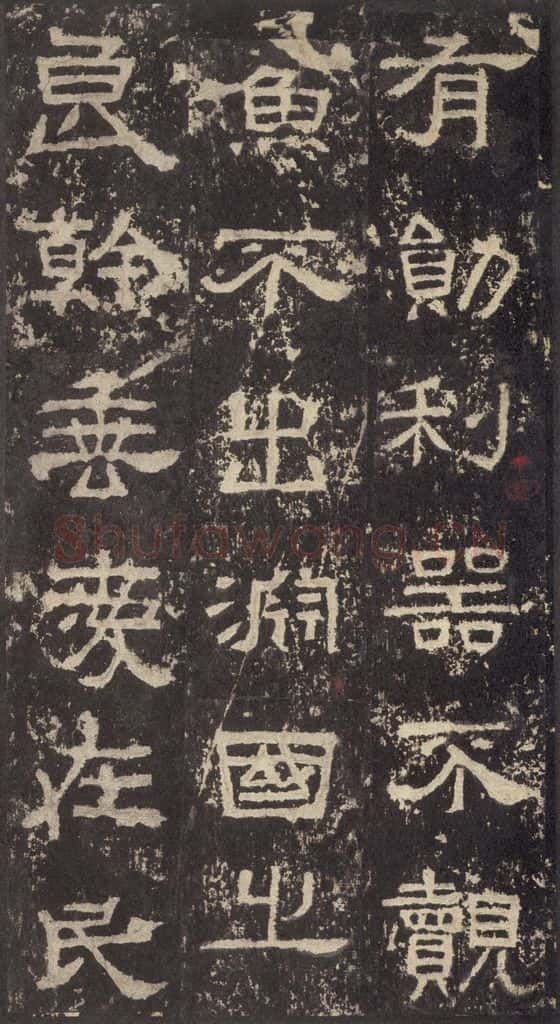 有勛利器不覿
魚不出淵國之
良幹垂愛在民
Shufawang.CN